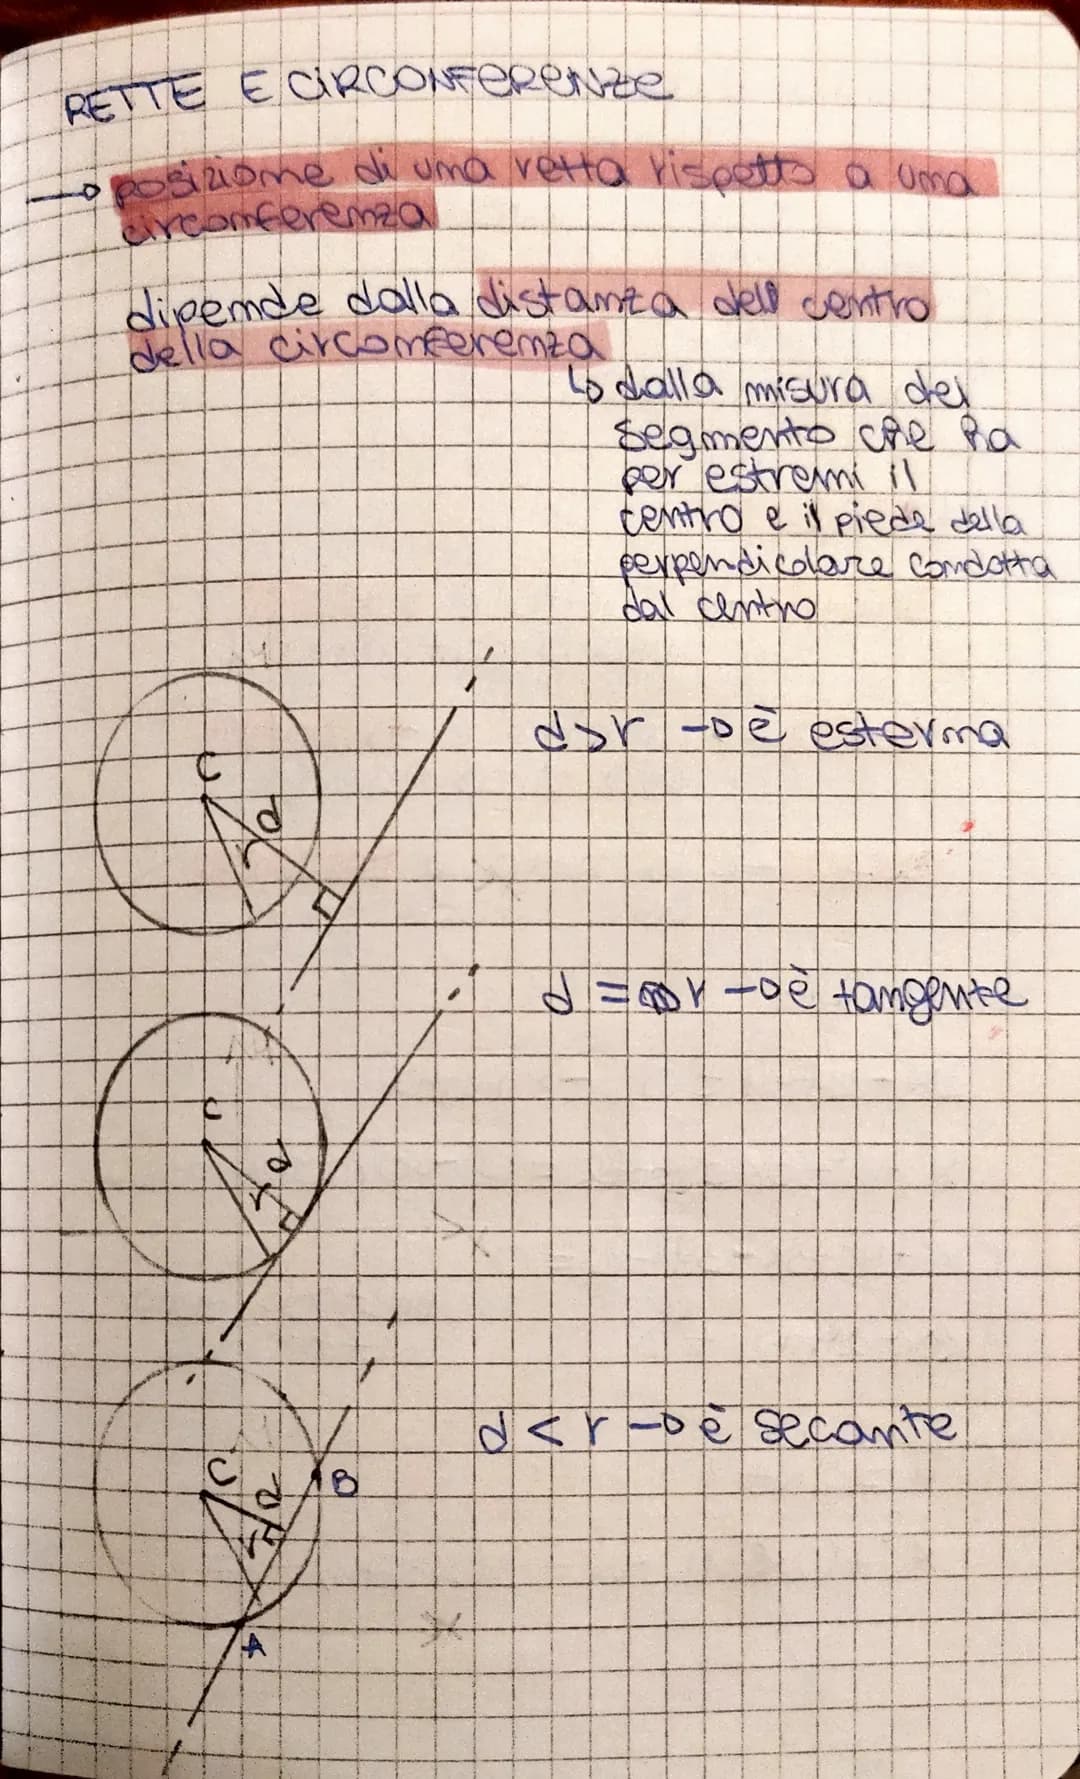 RETTE E CIRCONFERENZE
→ posizione di una retta rispetto a una
circonferenza
dipende dalla distanza del centro
della circonferenza
↳ dalla misura del
segmento che ha
per estremi il
centro e il piede della
perpendicolare condotta
dal centro
C
d
r
d>r → è esterna
d = r → è tangente
C
d
r
d < r → è secante
C
d
r
B
A